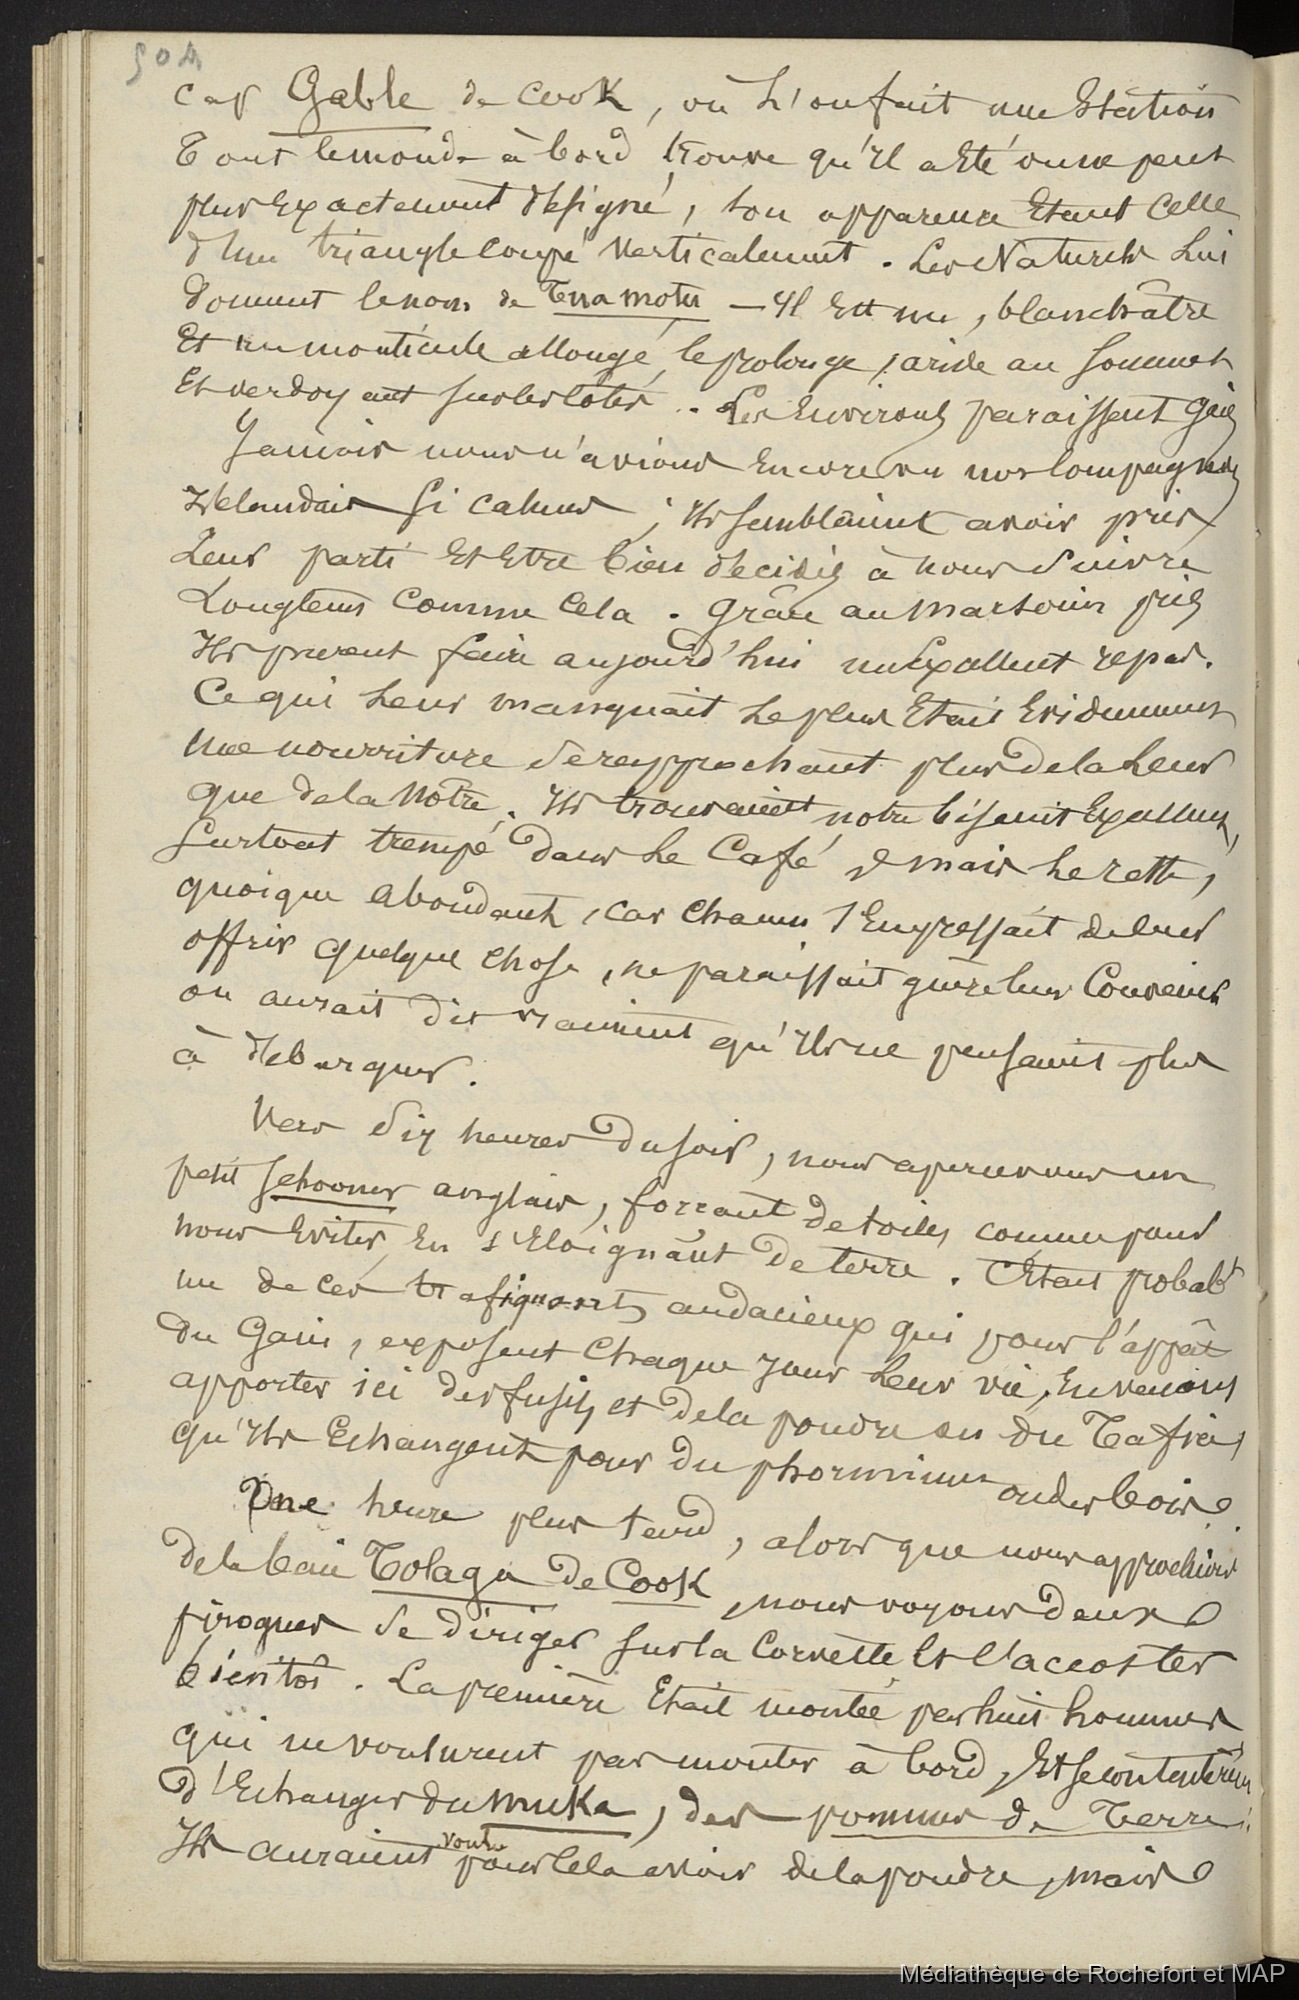 504
cap Gable de Cook, où L'on fait une Station
Tout le monde à bord trouve qu'Il a Eté on ne peut
plus Exactement désigné, son apparence Etant Celle
d'Un triangle coupé verticalement. Les Naturels Lui
donnent le nom de Tera motu — Il Est nu, blanchâtre
Et un monticule allongé le prolonge, aride au Sommet
Et verdoyant sur les Côtés. Les Environs paraissent gais
Jamais nous n'avions Encore vu nos Compagnons
Zélandais Si calmes, Ils semblaient avoir pris
Leur parti Et Etre bien décidés à nous Suivre
Longtems Comme Cela. Grâce au Marsouin pris
Ils purent faire aujourd'hui un Excellent repas.
Ce qui Leur manquait Le plus Etait Evidemment
Une nourriture Se rapprochant plus de la Leur
que de la Nôtre. Ils trouvaient notre biscuit Excellent,
Surtout trempé dans Le Café, mais Le reste,
quoique abondant, car Chacun s'Empressait de leur
offrir quelque chose, ne paraissait guère leur Convenir
on aurait dit vraiment qu'Ils ne pensaient plus
à débarquer.
Vers dix heures du soir, nous apercevons un
petit Schooner anglais, forçant de toiles comme pour
nous Eviter, En s'Eloignant de terre. C'Etait probablt
un de ces trafiquants audacieux qui pour l'appât
du Gain, exposent Chaque Jour Leur vie, En venant
apporter ici des fusils et de la poudre ou du Tafia,
qu'Ils Echangent pour du phormium ou des bois.
Une heure plus tard, alors que nous approchions
de la baie Tolaga de Cook, nous voyons deux
pirogues Se diriger sur la Corvette Et l'accoster
bientôt. La première Etait montée par huit hommes
qui ne voulurent pas monter à bord, Et se contentèrent
d'Echanger du muka, des pommes de Terre.
Ils auraient voulu pour Cela avoir de la poudre, mais
Médiathèque de Rochefort et MAP